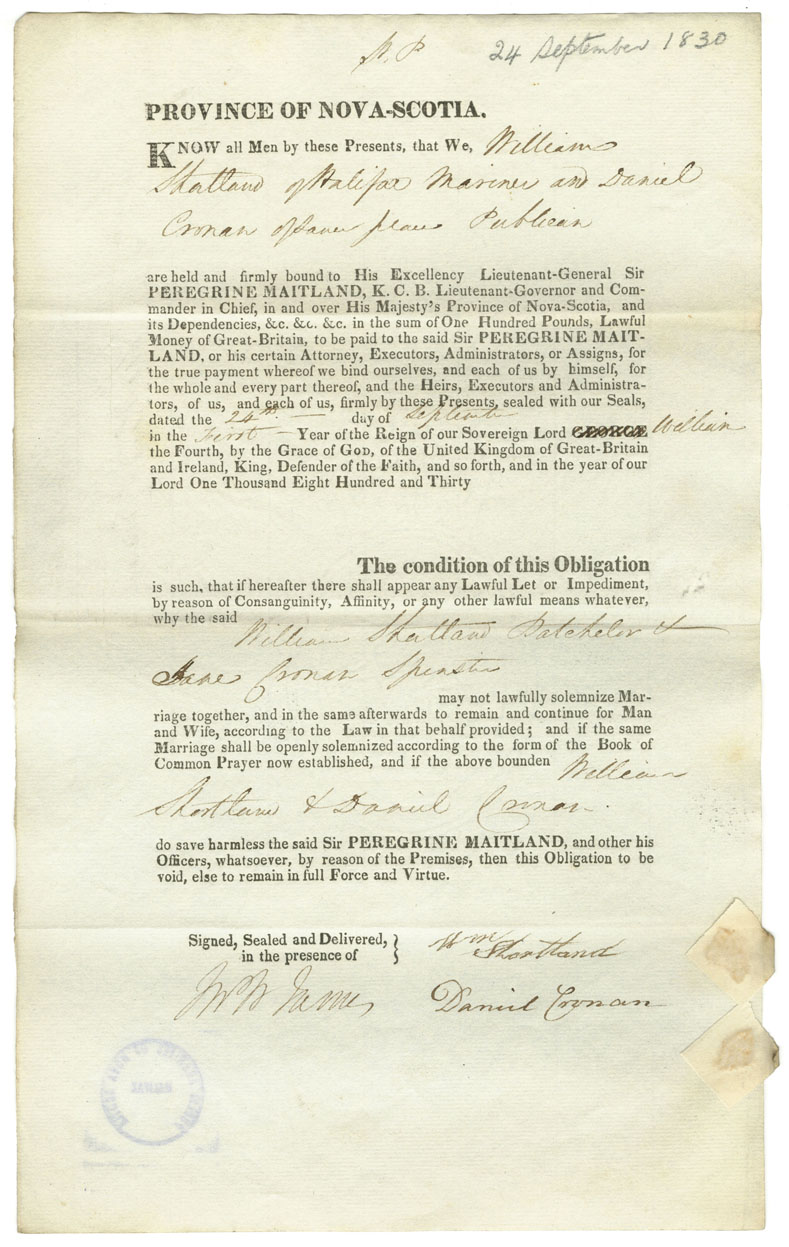 24 September 1830
PROVINCE OF NOVA-SCOTIA.
KNOW all Men by these Presents, that We, William
Shortland of Halifax Mariner and Daniel
Cronan of same place Publican
are held and firmly bound to His Excellency Lieutenant-General Sir
PEREGRINE MAITLAND, K. C. B. Lieutenant-Governor and Com-
mander in Chief, in and over His Majesty's Province of Nova-Scotia, and
its Dependencies, &c. &c. &c. in the sum of One Hundred Pounds, Lawful
Money of Great-Britain, to be paid to the said Sir PEREGRINE MAIT-
LAND, or his certain Attorney, Executors, Administrators, or Assigns, for
the true payment whereof we bind ourselves, and each of us by himself, for
the whole and every part thereof, and the Heirs, Executors and Administra-
tors, of us, and each of us, firmly by these Presents, sealed with our Seals,
dated the 24th day of September
in the First Year of the Reign of our Sovereign Lord GEORGE William
the Fourth, by the Grace of GOD, of the United Kingdom of Great-Britain
and Ireland, King, Defender of the Faith, and so forth, and in the year of our
Lord One Thousand Eight Hundred and Thirty
The condition of this Obligation
is such, that if hereafter there shall appear any Lawful Let or Impediment,
by reason of Consanguinity, Affinity, or any other lawful means whatever,
why the said
William Shortland Batchelor &
Jane Cronan Spinster
may not lawfully solemnize Mar-
riage together, and in the same afterwards to remain and continue for Man
and Wife, according to the Law in that behalf provided; and if the same
Marriage shall be openly solemnized according to the form of the Book of
Common Prayer now established, and if the above bounden William
Shortland & Daniel Cronan.
do save harmless the said Sir PEREGRINE MAITLAND, and other his
Officers, whatsoever, by reason of the Premises, then this Obligation to be
void, else to remain in full Force and Virtue.
Signed, Sealed and Delivered,
in the presence of
Wm Shortland
James
Daniel Cronan